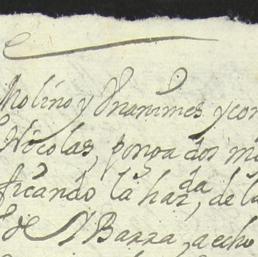 Molino y Vnanimes y con
Nicolas, ponga dos m
ficando la haz.da de la
Barra, a echo